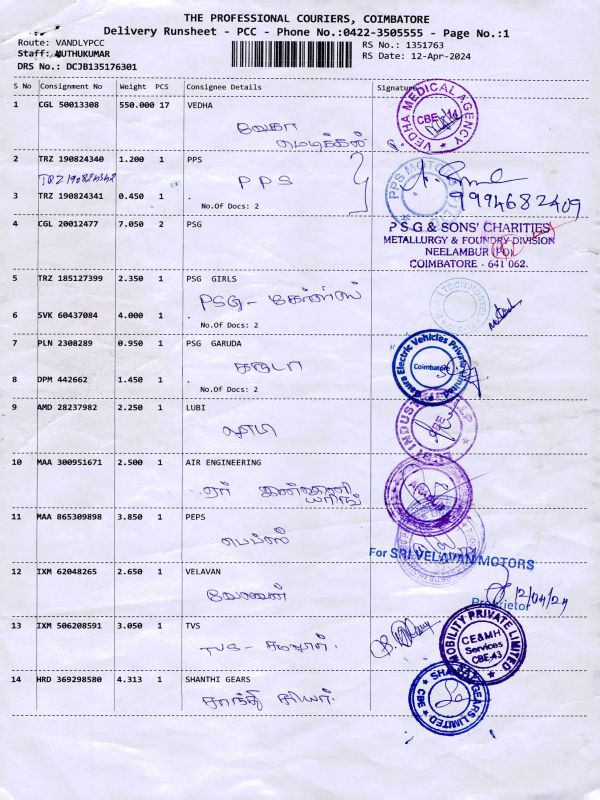 THE PROFESSIONAL COURIERS, COIMBATORE
Delivery Runsheet - PCC - Phone No.:0422-3505555 - Page No.:1
Route: VANDLYPCC RS No.: 1351763
Staff: MUTHUKUMAR RS Date: 12-Apr-2024
DRS No.: DCJB135176301
S No Consignment No Weight PCS Consignee Details Signature
1 CGL 50013308 550.000 17 VEDHA
வேதா
மெடிக்கல்
VEDHA MEDICAL AGENCY
CBE
2 TRZ 190824340 1.200 1 PPS
PPS
PPS MOTORS
9994682409
3 TRZ 190824341 0.450 1 .
No.Of Docs: 2
4 CGL 20012477 7.050 2 PSG
P S G & SONS' CHARITIES
METALLURGY & FOUNDRY DIVISION
NEELAMBUR
COIMBATORE - 641 062.
5 TRZ 185127399 2.350 1 PSG GIRLS
PSG - கேர்ள்ஸ்
6 SVK 60437084 4.000 1 .
No.Of Docs: 2
7 PLN 2308289 0.950 1 PSG GARUDA
கருடா
Electric Vehicles Private Limited
Coimbatore
8 DPM 442662 1.450 1 .
No.Of Docs: 2
9 AMD 28237982 2.250 1 LUBI
லூபி
10 MAA 300951671 2.500 1 AIR ENGINEERING
ஏர்
11 MAA 865309898 3.850 1 PEPS
பெப்ஸ்
For SRI VELAVAN MOTORS
12 IXM 62048265 2.650 1 VELAVAN
வேலவன்
Proprietor
12/04/24
13 IXM 506208591 3.050 1 TVS
TVS -
MOBILITY PRIVATE LIMITED
CE&MH
Services
CBE-43
14 HRD 369298580 4.313 1 SHANTHI GEARS
சாந்தி கியர்
SHANTHI GEARS LIMITED
CBE